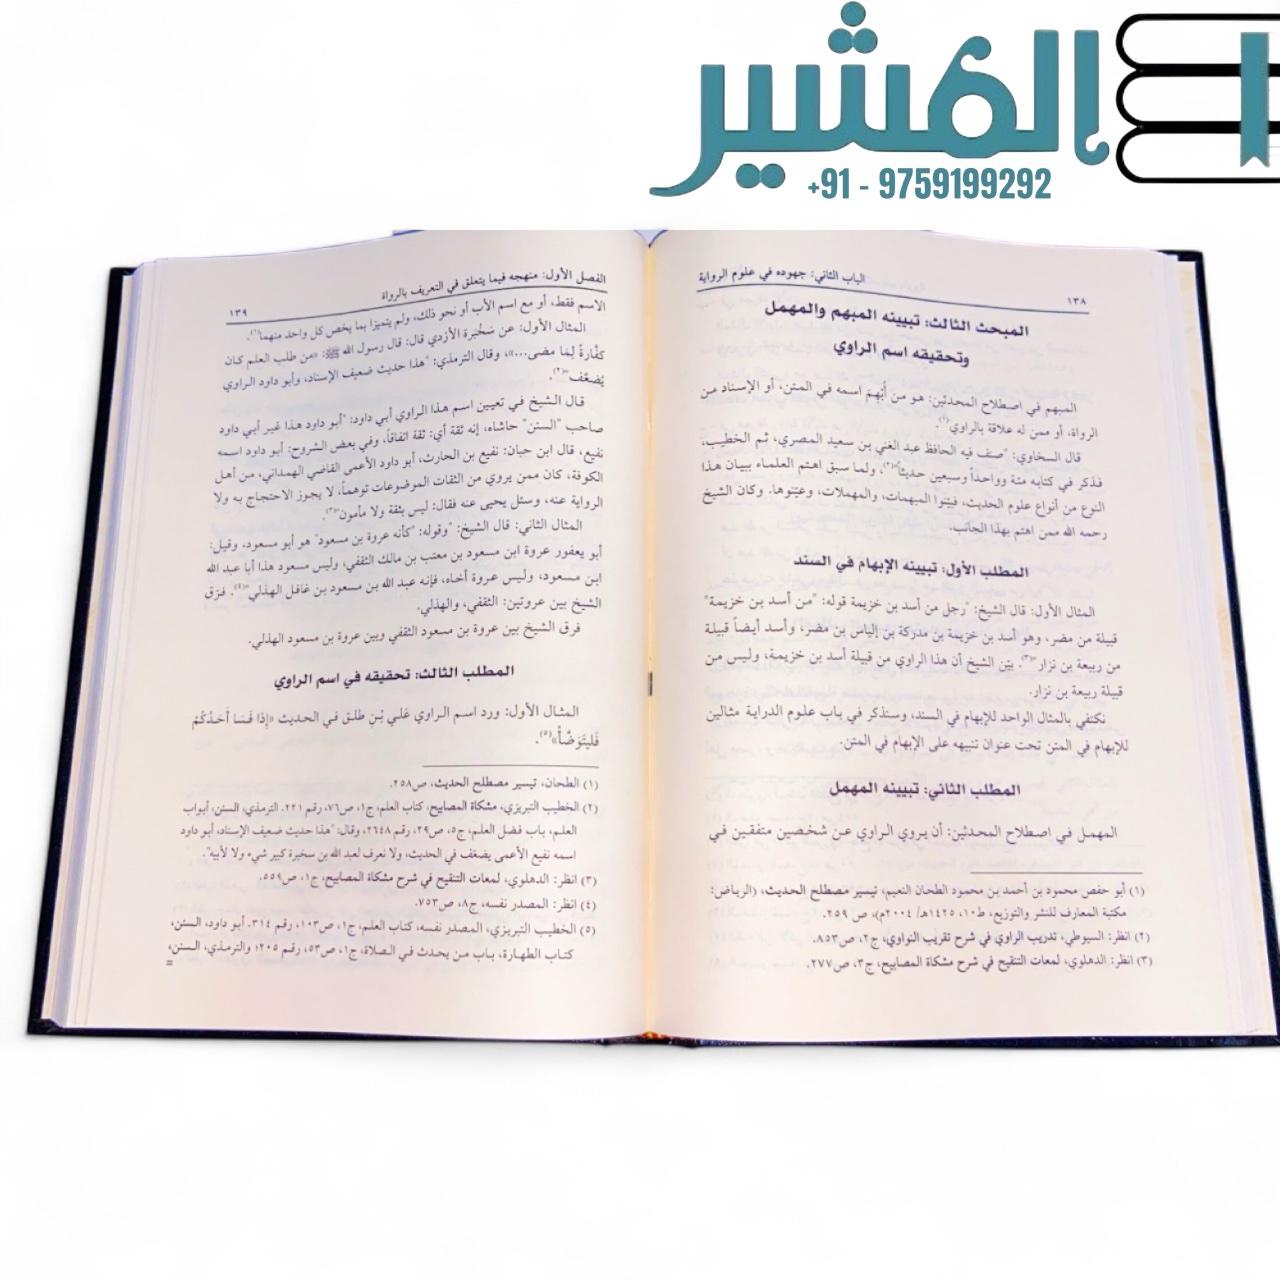 المشير
+91 - 9759199292
١٣٨
الباب الثاني: جهوده في علوم الرواية
المبحث الثالث: تبيينه المبهم والمهمل
وتحقيقه اسم الراوي
المبهم في اصطلاح المحدثين: هو من أُبهم اسمه في المتن، أو الإسناد من
الرواة، أو ممن له علاقة بالراوي(١).
قال السخاوي: "صنف فيه الحافظ عبد الغني بن سعيد المصري، ثم الخطيب،
فذكر في كتابه مئة وواحداً وسبعين حديثاً"(٢)، ولما سبق اهتم العلماء ببيان هذا
النوع من أنواع علوم الحديث، فبيّنوا المبهمات، والمهملات، وعيّنوها. وكان الشيخ
رحمه الله ممن اهتم بهذا الجانب.
المطلب الأول: تبيينه الإبهام في السند
المثال الأول: قال الشيخ: "رجل من أسد بن خزيمة قوله: "من أسد بن خزيمة"
قبيلة من مضر، وهو أسد بن خزيمة بن مدركة بن إلياس بن مضر، وأسد أيضاً قبيلة
من ربيعة بن نزار"(٣). بيّن الشيخ أن هذا الراوي من قبيلة أسد بن خزيمة، وليس من
قبيلة ربيعة بن نزار.
نكتفي بالمثال الواحد للإبهام في السند، وسنذكر في باب علوم الدراية مثالين
للإبهام في المتن تحت عنوان تنبيهه على الإبهام في المتن.
المطلب الثاني: تبيينه المهمل
المهمل في اصطلاح المحدثين: أن يروي الراوي عن شخصين متفقين في
(١) أبو حفص محمود بن أحمد بن محمود الطحان النعيم، تيسير مصطلح الحديث، (الرياض:
مكتبة المعارف للنشر والتوزيع، ط١٠، ١٤٢٥هـ/ ٢٠٠٤م)، ص ٢٥٩.
(٢) انظر: السيوطي، تدريب الراوي في شرح تقريب النواوي، ج٢، ص٨٥٣.
(٣) انظر: الدهلوي، لمعات التنقيح في شرح مشكاة المصابيح، ج٣، ص٢٧٧.
الفصل الأول: منهجه فيما يتعلق في التعريف بالرواة
١٣٩
الاسم فقط، أو مع اسم الأب أو نحو ذلك، ولم يتميزا بما يخص كل واحد منهما(١).
المثال الأول: عن سَخْبَرة الأزدي قال: قال رسول الله ﷺ: «من طلب العلم كان
كفَّارةً لِمَا مضى...»، وقال الترمذي: "هذا حديث ضعيف الإسناد، وأبو داود الراوي
يُضعَّف"(٢).
قال الشيخ في تعيين اسم هذا الراوي أبي داود: "أبو داود هذا غير أبي داود
صاحب "السنن" حاشاه، إنه ثقة أي: ثقة اتفاقاً، وفي بعض الشروح: أبو داود اسمه
نفيع، قال ابن حبان: نفيع بن الحارث، أبو داود الأعمى القاضي الهمداني، من أهل
الكوفة، كان ممن يروي من الثقات الموضوعات توهماً، لا يجوز الاحتجاج به ولا
الرواية عنه، وسئل يحيى عنه فقال: ليس بثقة ولا مأمون"(٣).
المثال الثاني: قال الشيخ: "وقوله: "كأنه عروة بن مسعود" هو أبو مسعود، وقيل:
أبو يعفور عروة ابن مسعود بن معتب بن مالك الثقفي، وليس مسعود هذا أبا عبد الله
ابن مسعود، وليس عروة أخاه، فإنه عبد الله بن مسعود بن غافل الهذلي"(٤). فرّق
الشيخ بين عروتين: الثقفي، والهذلي.
فرق الشيخ بين عروة بن مسعود الثقفي وبين عروة بن مسعود الهذلي.
المطلب الثالث: تحقيقه في اسم الراوي
المثال الأول: ورد اسم الراوي عَلي بْن طلق في الحديث «إِذَا فَسَا أَحَدُكُمْ
فَليتَوَضَّأْ»(٥).
(١) الطحان، تيسير مصطلح الحديث، ص٢٥٨.
(٢) الخطيب التبريزي، مشكاة المصابيح، كتاب العلم، ج١، ص٧٦، رقم ٢٢١. الترمذي، السنن، أبواب
العلم، باب فضل العلم، ج٥، ص٢٩، رقم ٢٦٤٨، وقال: "هذا حديث ضعيف الإسناد، أبو داود
اسمه نفيع الأعمى يضعّف في الحديث، ولا نعرف لعبد الله بن سخبرة كبير شيء ولا لأبيه".
(٣) انظر: الدهلوي، لمعات التنقيح في شرح مشكاة المصابيح، ج١، ص٥٥٩.
(٤) انظر: المصدر نفسه، ج٨، ص٧٥٣.
(٥) الخطيب التبريزي، المصدر نفسه، كتاب العلم، ج١، ص١٠٣، رقم ٣١٤. أبو داود، السنن،
كتاب الطهارة، باب من يحدث في الصلاة، ج١، ص٥٣، رقم ٢٠٥؛ والترمذي، السنن،
=